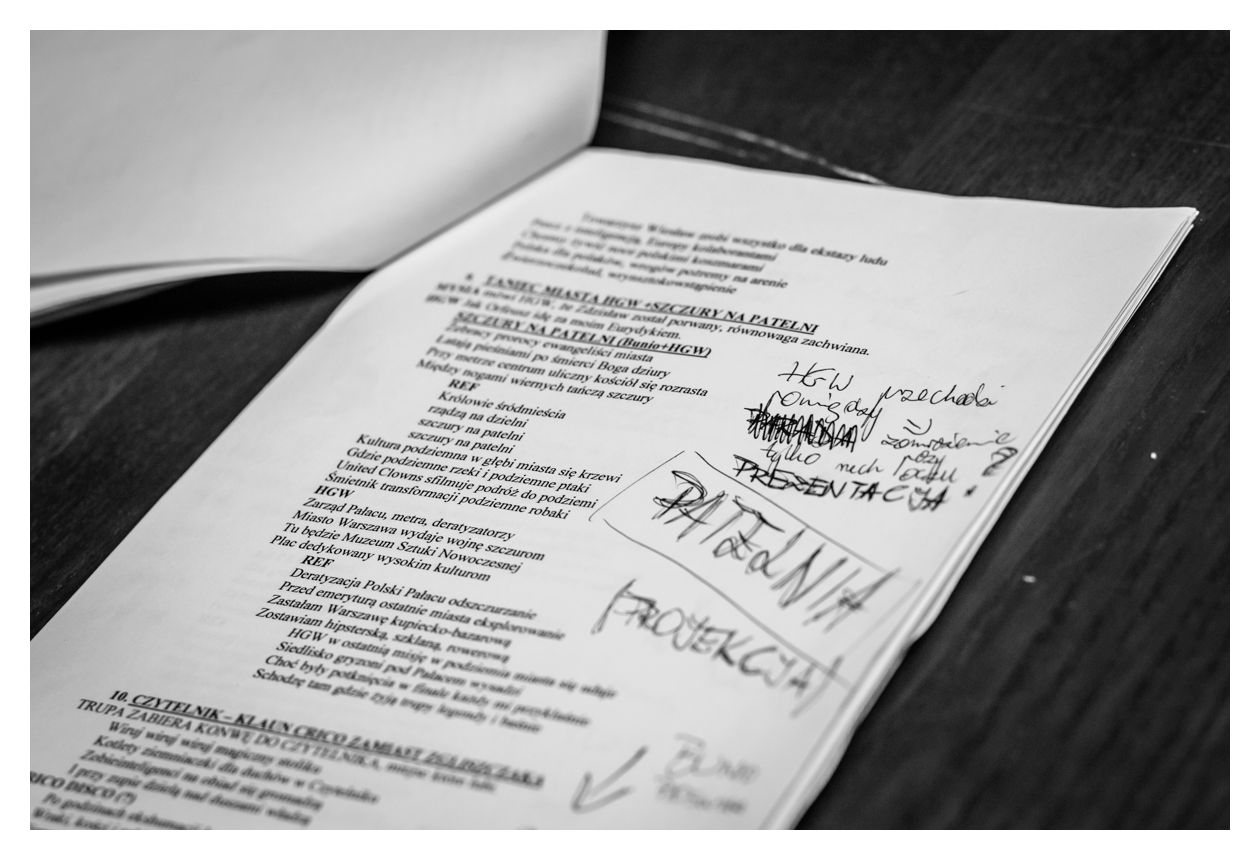 Towarzysze Wiesław zrobi wszystko dla ekstazy ludu
Precz z inteligencją, Europy kolaborantami
Chcemy żywić nowe polskimi koszmarami
Polska dla polaków, wrogów potremy na arenie
TANIEC MIASTA HGW +SZCZURY NA PATELNI
mówi HGW, że Zdzisław został porwany, równowaga zachwiana.
HGW Jak Orfeusz idę za moim Eurydykiem.
SZCZURY NA PATELNI (Bunio+HGW)
Żebracy prorocy ewangeliści miasta
Łatają pieśniami po śmierci Boga dziury
Przy metrze centrum uliczny kościół się rozrasta
Między nogami wiernych tańczą szczury
REF
Królowie śródmieścia
rządzą na dzielni
szczury na patelni
szczury na patelni
Kultura podziemna w głębi miasta się krzewi
Gdzie podziemne rzeki i podziemne ptaki
United Clowns sfilmuje podróż do podziemi
Śmietnik transformacji podziemne robaki
HGW
Zarząd Pałacu, metra, deratyzatorzy
Miasto Warszawa wydaje wojnę szczurom
Tu będzie Muzeum Sztuki Nowoczesnej
Plac dedykowany wysokim kulturom
REF
Deratyzacja Polski Pałacu odszczurzanie
Przed emeryturą ostatnie miasta eksplorowanie
Zastałam Warszawę kupiecko-bazarową
Zostawiam hipsterską, szklaną, rowerową
HGW w ostatnią misję w podziemia miasta się udaje
Siedlisko gryzoni pod Pałacem wysadzi
Choć były potknięcia w finale każdy mi przyklaśnie
Schodzę tam gdzie żyją trupy legendy i baśnie
10. CZYTELNIK – KLAUN CRICO ZAMIAST
TRUPA ZABIERA KONWĘ DO CZYTELNIKA,
Wiruj wiruj wiruj magiczny stoliku
Kotlety ziemniaczki dla duchów w Czytelniku
Zobieinteligenci na obiad się gromadzą
I przy zupie dzielą nad duszami władzę
CRICO DISCO (?)
Po godzinach
HGW przechodzi
pomiędzy
tylko niech
PREZENTACJA
PATELNIA
PROJEKCJA
BUNIO